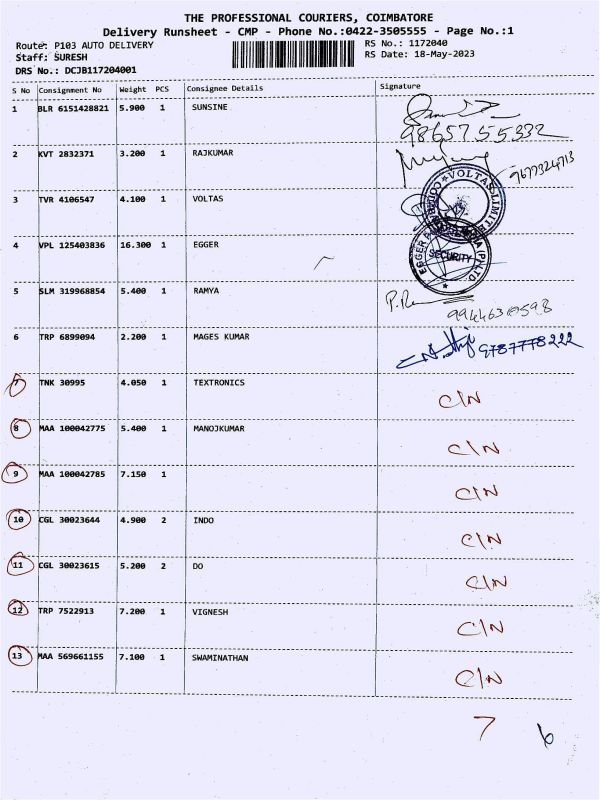 THE PROFESSIONAL COURIERS, COIMBATORE
Delivery Runsheet - CMP - Phone No.:0422-3505555 - Page No.:1
Route: P103 AUTO DELIVERY RS No.: 1172040
Staff: SURESH RS Date: 18-May-2023
DRS No.: DCJB117204001
S No Consignment No Weight PCS Consignee Details Signature
1 BLR 6151428821 5.900 1 SUNSINE
9865755332
2 KVT 2832371 3.200 1 RAJKUMAR
9677324713
3 TVR 4106547 4.100 1 VOLTAS
VOLTAS LIMITE
4 VPL 125403836 16.300 1 EGGER
EGGER SECURITY (P) LTD
5 SLM 319968854 5.400 1 RAMYA
6 TRP 6899094 2.200 1 MAGES KUMAR 9787778222
7 TNK 30995 4.050 1 TEXTRONICS C/N
8 MAA 100042775 5.400 1 MANOJKUMAR C/N
9 MAA 100042785 7.150 1 C/N
10 CGL 30023644 4.900 2 INDO C/N
11 CGL 30023615 5.200 2 DO C/N
12 TRP 7522913 7.200 1 VIGNESH C/N
13 MAA 569661155 7.100 1 SWAMINATHAN C/N
7 6